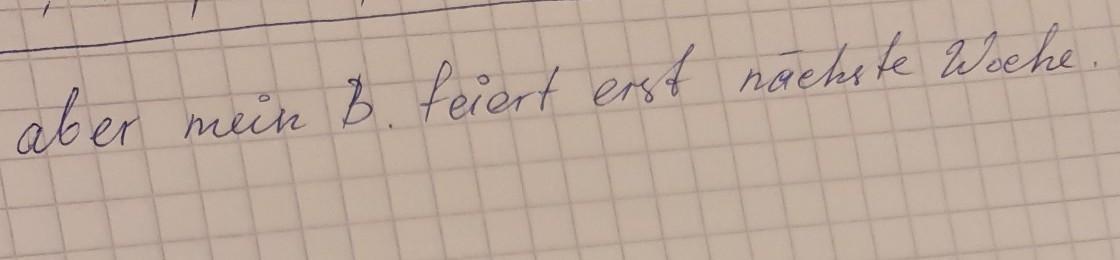 aber mein B. feiert erst nächste Woche.